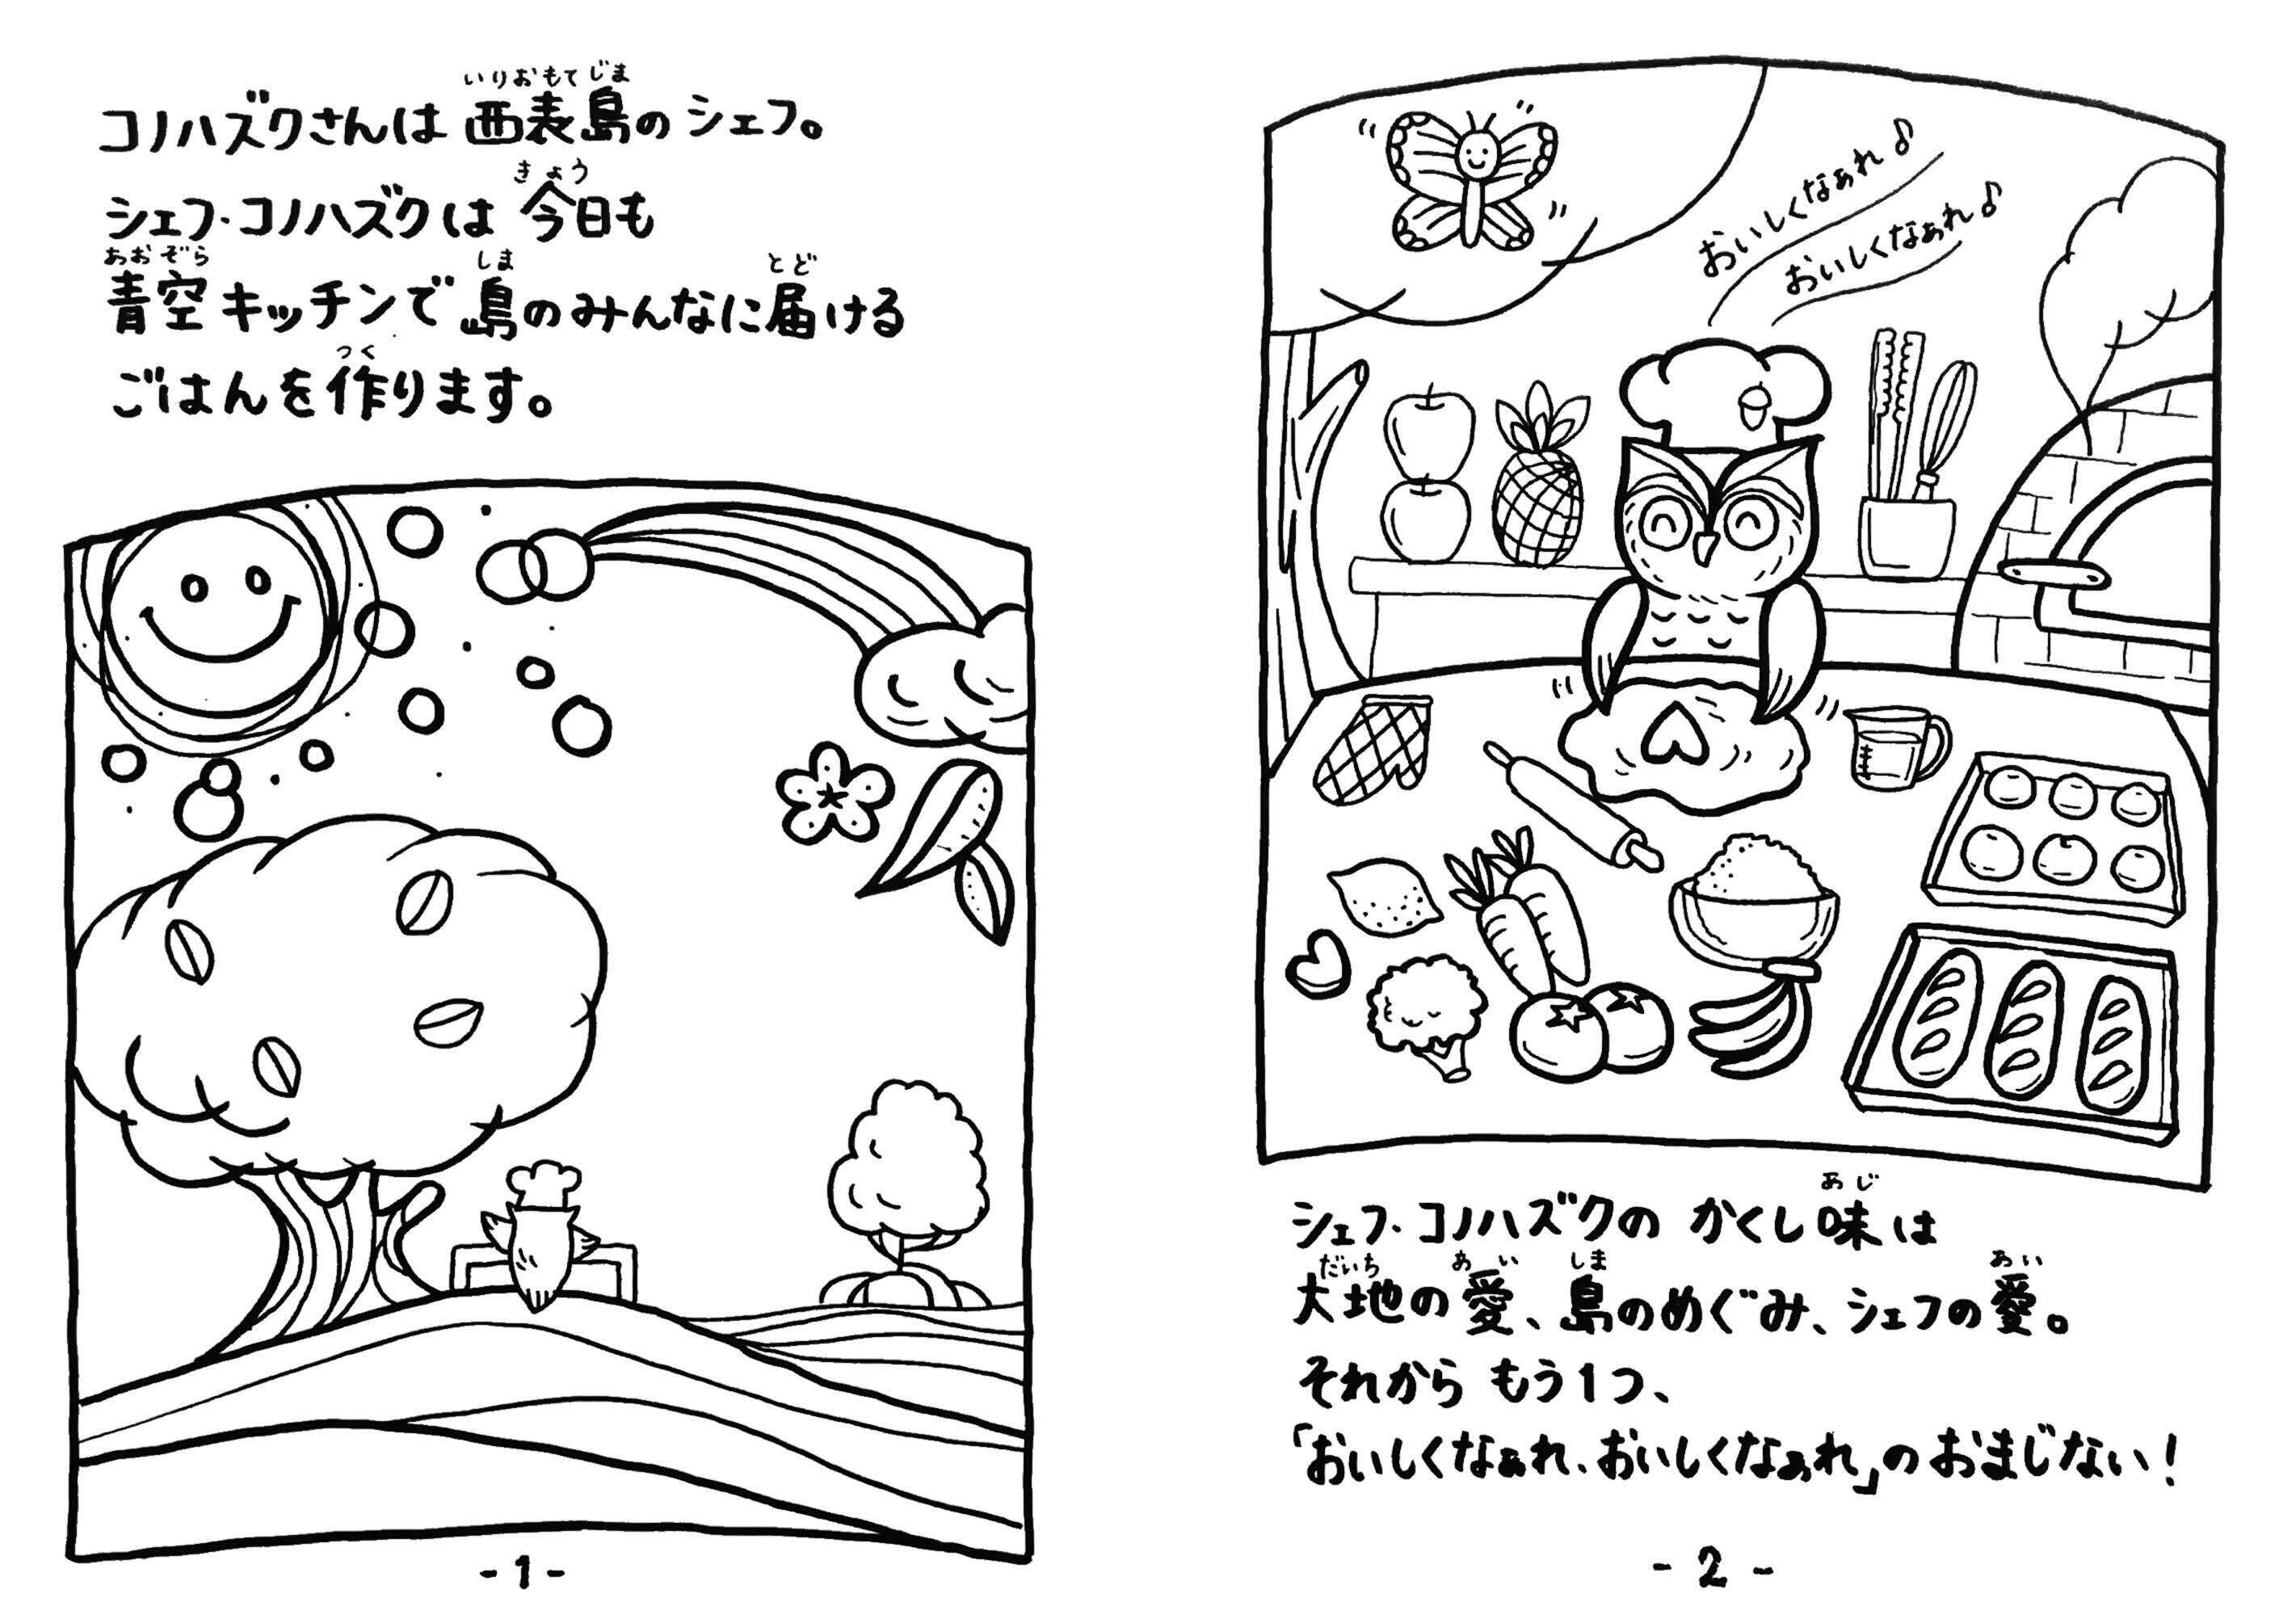 コノハズクさんは 西表島のシェフ。
いりおもてじま
シェフ・コノハズクは 今日も
きょう
青空キッチンで 島のみんなに届ける
あおぞら しま とど
ごはんを作ります。
つく
- 1 -
おいしくなぁれ♪
おいしくなぁれ♪
シェフ・コノハズクの かくし味は
あじ
大地の愛、島のめぐみ、シェフの愛。
だいち あい しま あい
それから もう1つ、
「おいしくなぁれ、おいしくなぁれ」の おまじない！
- 2 -